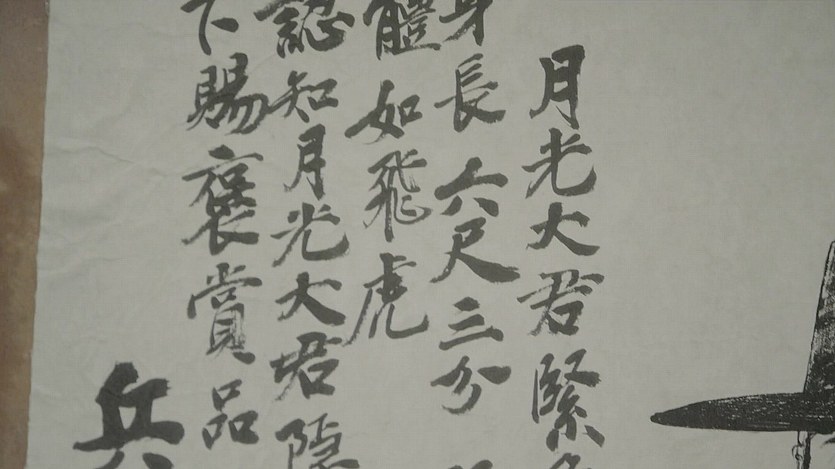 月光大君緊
身長六尺三分
體如飛虎
認知月光大君隱
下賜褒賞品
兵